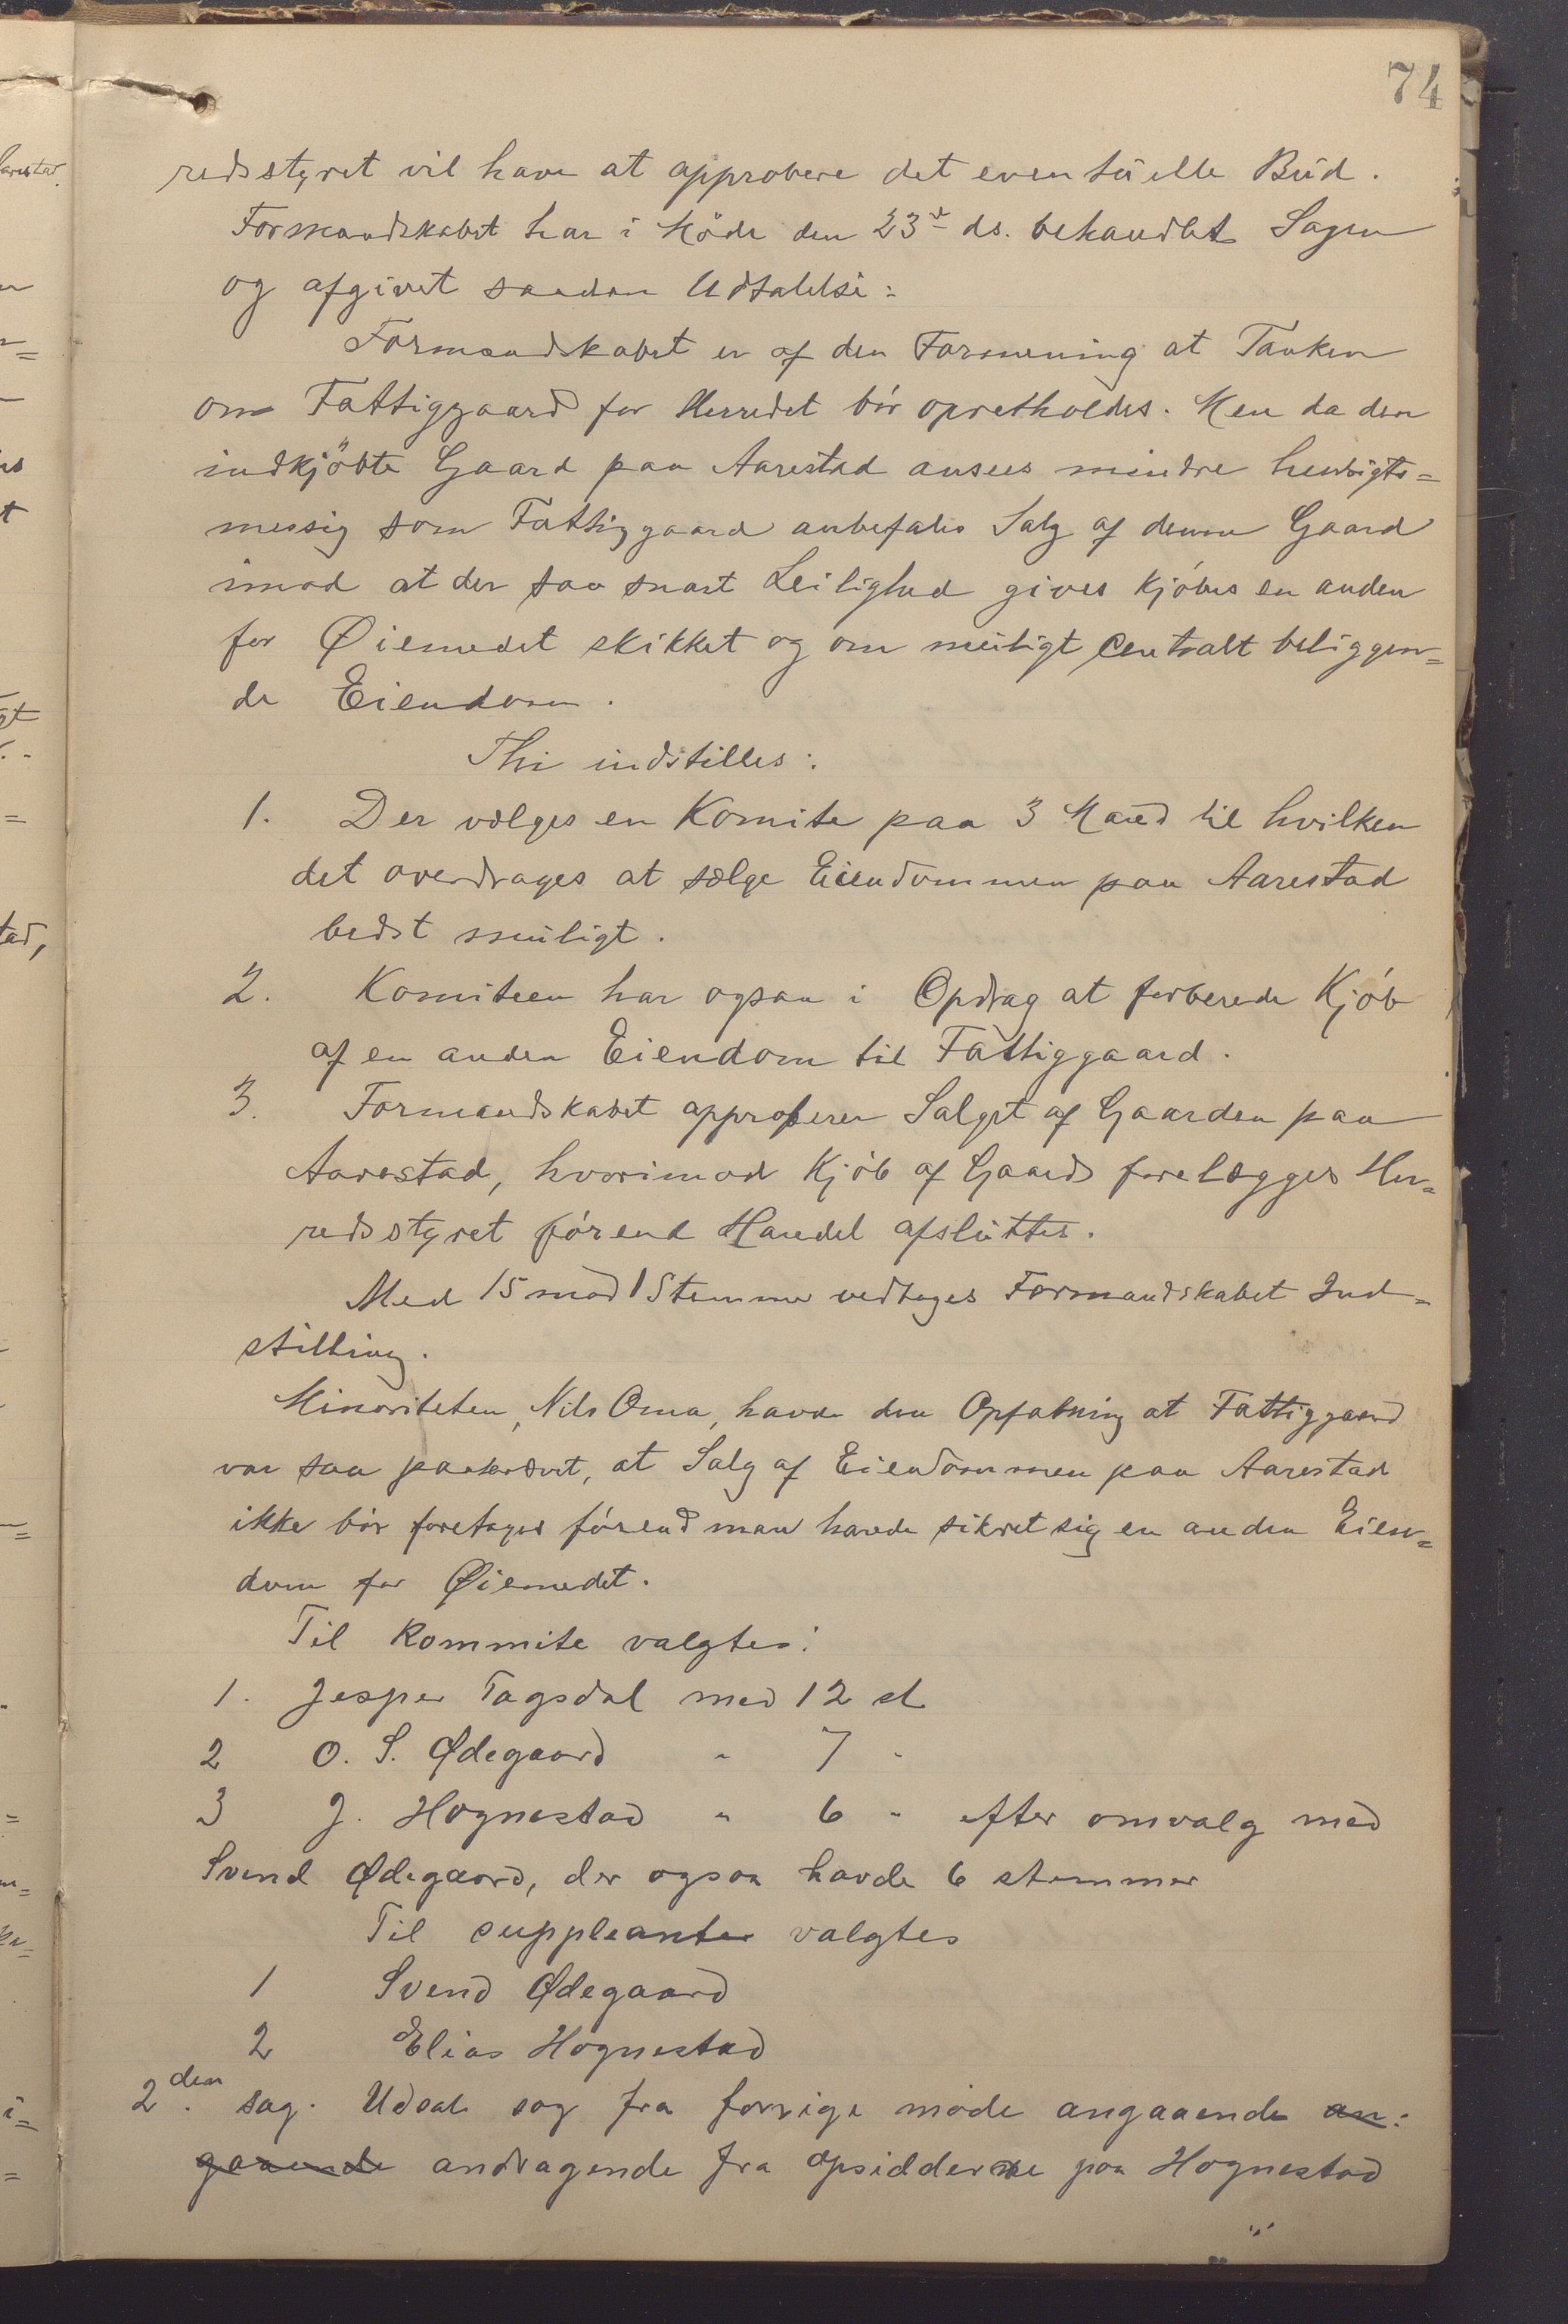 74
redsstyret vil have at approbere det eventuelle Bud.
Formandskabet har i Möde den 23d ds. behandlet Sagen
og afgivet saadan Udtalelse:
Formandskabet er af den Formening at Tanken
om Fattiggaard for Herredet bör opretholdes. Men da den
indkjöbte Gaard paa Aarestad ansees mindre hensigts=
messig som Fattiggaard anbefales Salg af denne Gaard
imod at der saa snart Leilighed gives kjöbes en anden
for Øiemedet skikket og om muligt centralt beliggen=
de Eiendom.
Thi indstilles:
1. Der vælges en Komite paa 3 Mand til hvilken
det overdrages at sælge Eiendommen paa Aarestad
bedst muligt.
2. Komiteen har ogsaa i Opdrag at forberede Kjöb
af en anden Eiendom til Fattiggaard.
3. Formandskabet approberer Salget af Gaarden paa
Aarestad, hvorimod Kjöb af Gaard forelægges Her=
redsstyret förend Handel afsluttes.
Med 15 mod 1 Stemme vedtoges Formandskabet Ind=
stilling.
Minoriteten, Nils Oma, havde den Opfatning at Fattiggaard
var saa paakrævet, at Salg af Eiendommen paa Aarestad
ikke bör foretages förend man havde sikret sig en anden Eien=
dom for Øiemedet.
Til Kommite valgtes:
1. Jesper Tagsdal med 12 st
2 O. S. Ødegaard " 7 "
3 J. Hognestad " 6 " efter omvalg med
Svend Ødegaard, der ogsaa havde 6 stemmer
Til suppleanter valgtes
1 Svend Ødegaard
2 Elias Hognestad
2den sag. Udsat sag fra forrige möde angaaende an:
gaaende andragende fra opsidderne paa Hognestad